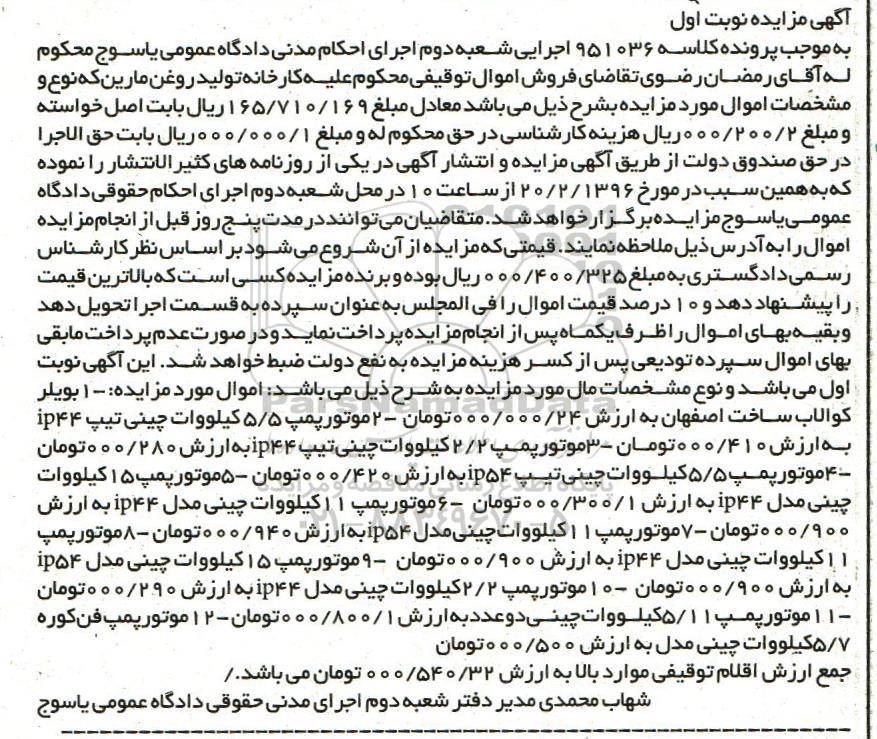 آگهی مزایده نوبت اول
به موجب پرونده کلاسه ۹۵۱۰۳۶ اجرایی شعبه دوم اجرای احکام مدنی دادگاه عمومی یاسوج محکوم
له آقای رمضان رضوی تقاضای فروش اموال توقیفی محکوم علیه کارخانه تولید روغن مارین که نوع و
مشخصات اموال مورد مزایده بشرح ذیل می باشد معادل مبلغ ۱۶۵/۷۱۰/۱۶۹ ریال بابت اصل خواسته
و مبلغ ۰۰۰/۲۰۰/۲ ریال هزینه کارشناسی در حق محکوم له و مبلغ ۰۰۰/۰۰۰/۱ ریال بابت حق الاجرا
در حق صندوق دولت از طریق آگهی مزایده و انتشار آگهی در یکی از روزنامه های کثیر الانتشار را نموده
که به همین سبب در مورخ ۲۰/۲/۱۳۹۶ از ساعت ۱۰ در محل شعبه دوم اجرای احکام حقوقی دادگاه
عمومی یاسوج مزایده برگزار خواهد شد. متقاضیان می توانند در مدت پنج روز قبل از انجام مزایده
اموال را به آدرس ذیل ملاحظه نمایند. قیمتی که مزایده از آن شروع می شود بر اساس نظر کارشناس
رسمی دادگستری به مبلغ ۰۰۰/۴۰۰/۳۲۵ ریال بوده و برنده مزایده کسی است که بالاترین قیمت
را پیشنهاد دهد و ۱۰ درصد قیمت اموال را فی المجلس به عنوان سپرده به قسمت اجرا تحویل دهد
و بقیه بهای اموال را ظرف یکماه پس از انجام مزایده پرداخت نماید و در صورت عدم پرداخت مابقی
بهای اموال سپرده تودیعی پس از کسر هزینه مزایده به نفع دولت ضبط خواهد شد. این آگهی نوبت
اول می باشد و نوع مشخصات مال مورد مزایده به شرح ذیل می باشد: اموال مورد مزایده: -۱بویلر
کوالاب ساخت اصفهان به ارزش ۰۰۰/۰۰۰/۲۴تومان -۲موتورپمپ ۵/۵ کیلووات چینی تیپ ip۴۴
به ارزش ۰۰۰/۴۱۰تومان -۳موتورپمپ ۲/۲ کیلووات چینی تیپ ip۴۴به ارزش ۰۰۰/۲۸۰تومان
-۴موتورپمپ ۵/۵کیلووات چینی تیپ ip۵۴به ارزش ۰۰۰/۴۲۰تومان -۵موتورپمپ ۱۵کیلووات
چینی مدل ip۴۴ به ارزش ۰۰۰/۳۰۰/۱تومان -۶موتورپمپ ۱۱کیلووات چینی مدل ip۴۴ به ارزش
۰۰۰/۹۰۰تومان -۷موتورپمپ ۱۱کیلووات چینی مدل ip۵۴به ارزش ۰۰۰/۹۴۰تومان -۸موتورپمپ
۱۱کیلووات چینی مدل ip۴۴ به ارزش ۰۰۰/۹۰۰تومان -۹موتورپمپ ۱۵کیلووات چینی مدل ip۵۴
به ارزش ۰۰۰/۹۰۰تومان -۱۰موتورپمپ ۲/۲کیلووات چینی مدل ip۴۴ به ارزش ۰۰۰/۲۹۰تومان
-۱۱موتورپمپ ۵/۱۱کیلووات چینی دو عدد به ارزش ۰۰۰/۸۰۰/۱تومان -۱۲موتورپمپ فن کوره
۵/۷کیلووات چینی مدل به ارزش ۰۰۰/۵۰۰تومان
جمع ارزش اقلام توقیفی موارد بالا به ارزش ۰۰۰/۵۴۰/۳۲ تومان می باشد./
شهاب محمدی مدیر دفتر شعبه دوم اجرای مدنی حقوقی دادگاه عمومی یاسوج
ParsNamadData
۰۲۱-۸۸۳۴۹۶۷۰-۵